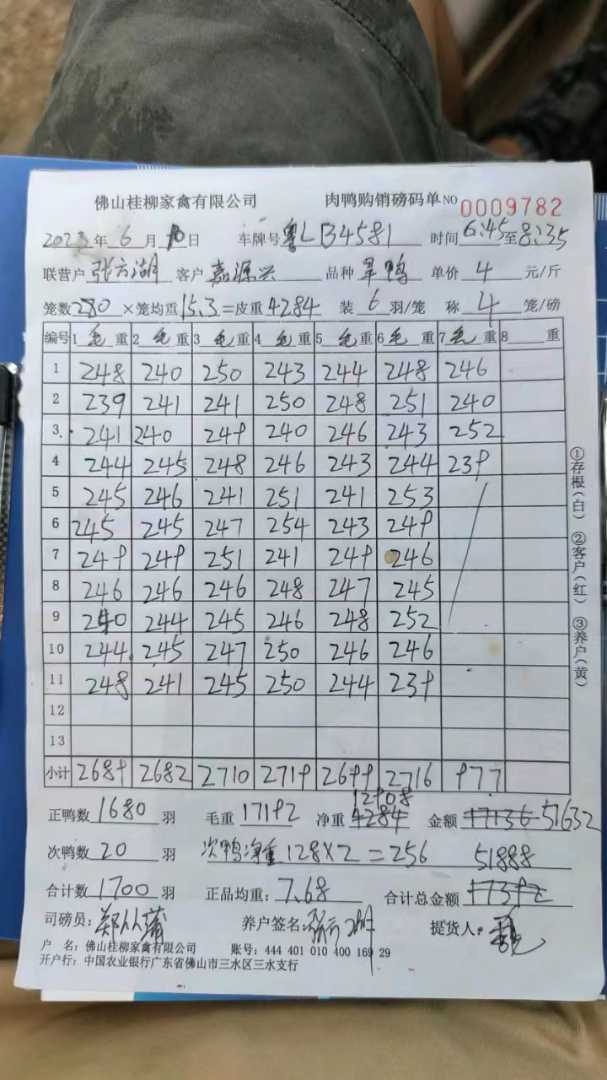 佛山桂柳家禽有限公司 肉鸭购销磅码单 NO 0009782
2023年 6 月 10 日 车牌号 粤LB34581 时间 6:45 至 8:35
联营户 张六湖 客户 嘉源兴 品种 旱鸭 单价 4 元/斤
笼数 280 ×笼均重 15.3 =皮重 4284 装 6 羽/笼 称 4 笼/磅
编号 1 毛 重 2 毛 重 3 毛 重 4 毛 重 5 毛 重 6 毛 重 7 毛 重 8 重
1 248 240 250 243 244 248 246
2 239 241 241 250 248 251 240
3 241 240 249 240 246 243 252
4 244 245 248 246 243 244 239
5 245 246 241 251 241 253
6 245 245 247 254 243 249
7 249 249 251 241 249 246
8 246 246 246 248 247 245
9 240 244 245 246 248 252
10 244 245 247 250 246 246
11 248 241 245 250 244 239
12
13
小计 2689 2682 2710 2719 2699 2716 977
①存根(白) ②客户(红) ③养户(黄)
12908
正鸭数 1680 羽 毛重 17192 净重 4284 金额 17136 51632
次鸭数 20 羽 次鸭净重 128×2=256 51888
合计数 1700 羽 正品均重: 7.68 合计总金额 17392
司磅员: 郑从 养户签名: 提货人:
户 名: 佛山桂柳家禽有限公司 账号: 444 401 010 400 169 29
开户行: 中国农业银行广东省佛山市三水区三水支行